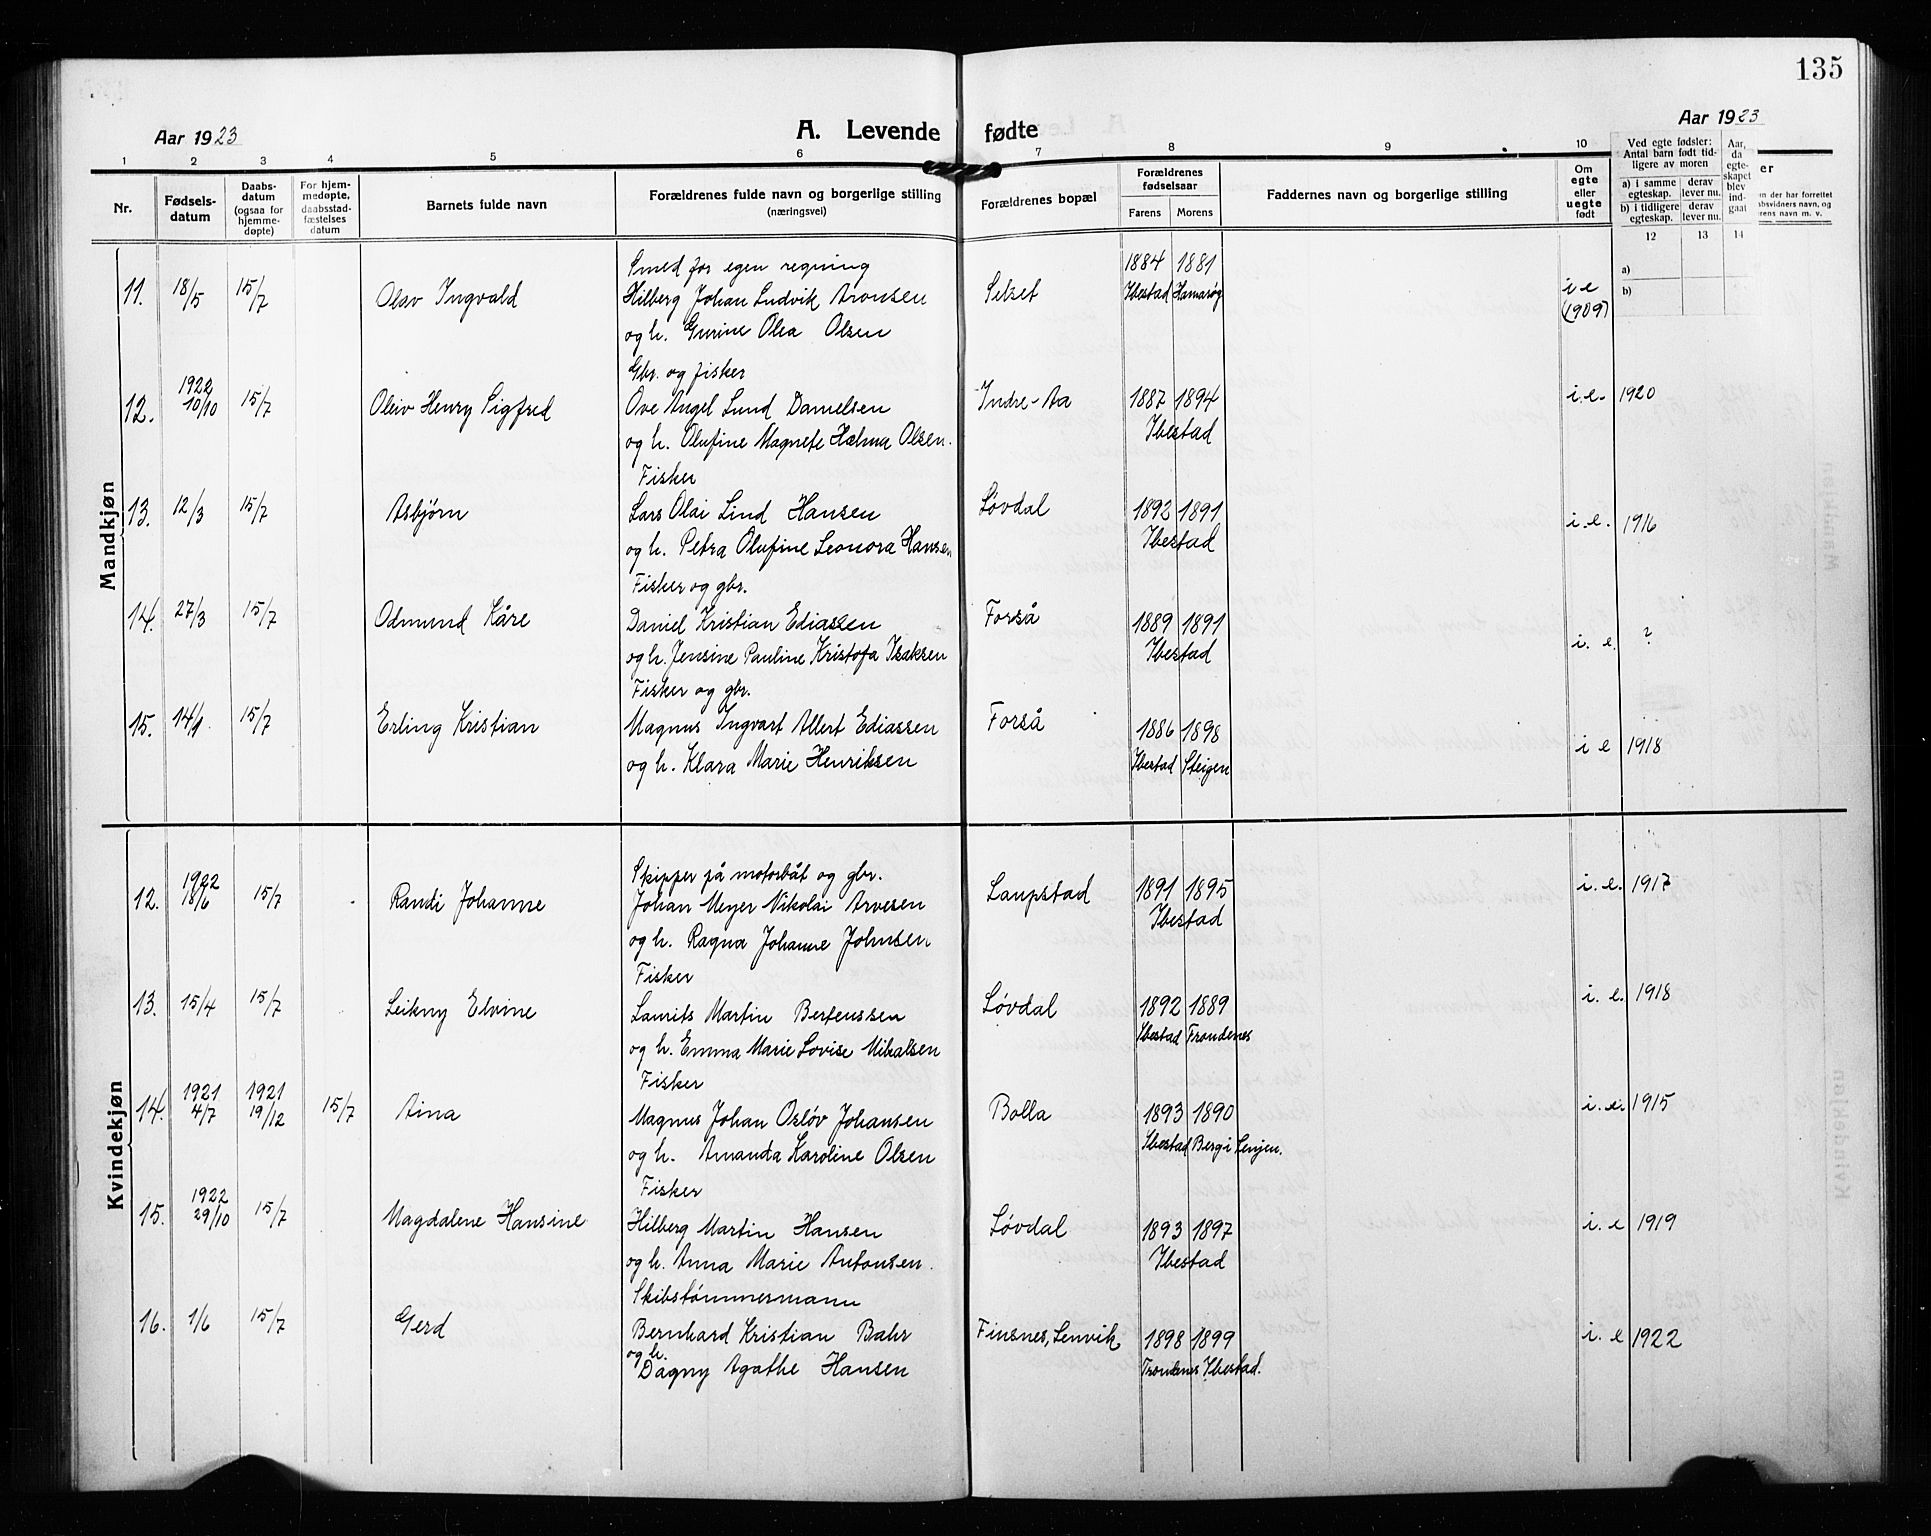 135
Aar 1923
A. Levende fødte
Aar 1923
1 2 3 4 5 6 7 8 9 10
Nr.
Fødsels-
datum
Daabs-
datum
(ogsaa for
hjemme-
døpte)
For hjem-
medøpte,
daabsstad-
fæstelses
datum
Barnets fulde navn
Forældrenes fulde navn og borgerlige stilling
(næringsvei)
Forældrenes bopæl
Forældrenes
fødselsaar
Farens Morens
Faddernes navn og borgerlige stilling
Om
egte
eller
uegte
født
Ved egte fødsler:
Antal barn født tid-
ligere av moren
a) i samme
egteskap.
derav
lever nu.
b) i tidligere
egteskap.
derav
lever nu.
Aar,
da
egte-
skapet
blev
ind-
gaat
12 13 14
a)
b)
er
n der har forrettet
absvidners navn, og
erens navn m. v.
Mandkjøn
Smed for egen regning 1884 1881
11. 18/5 15/7 Olav Ingvald Hilberg Johan Ludvik Aronsen Selset Ibestad Hamarøy i e
(1909)
og h. Gurine Olea Olsen
Gbr. og fisker
12. 1922 10/10 15/7 Oleiv Henry Sigfred Ove Angel Lund Danielsen Indre-Aa 1887 1894 i.e. 1920
og h. Olufine Magnete Helma Olsen. Ibestad
Fisker
13. 12/3 15/7 Asbjørn Lars Olai Lind Hansen Løvdal 1892 1891 i.e. 1916
og h. Petra Olufine Leonora Hansen Ibestad
Fisker og gbr.
14. 27/3 15/7 Odmund Kåre Daniel Kristian Ediassen Forså 1889 1891 i. e. ?
og h. Jensine Pauline Kristofa Isaksen Ibestad
Fisker og gbr.
15. 14/1 15/7 Erling Kristian Magnus Ingvart Allert Ediassen Forså 1886 1898 i e 1918
og h. Klara Marie Henriksen Ibestad Steigen
Kvindekjøn
Skipper på motorbåt og gbr.
12. 1922 18/6 15/7 Randi Johanne Johan Meyer Nikolai Arvesen Laupstad 1891 1895 i. e. 1917
og h. Ragna Johanne Johnsen Ibestad
Fisker
13. 15/4 15/7 Leikny Elvine Laurits Martin Bertenssen Løvdal 1892 1889 i. e. 1918
og h. Emma Marie Lovise Mikalsen Ibestad Trondenes
Fisker
14. 1921 4/7 1921 19/12 15/7 Aina Magnus Johan Osløv Johansen Bolla 1893 1890 i. e. 1915
og h. Amanda Karoline Olsen Ibestad Berg i Senjen.
Fisker
15. 1922 29/10 15/7 Magdalene Hansine Hilberg Martin Hansen Løvdal 1893 1897 i. e 1919
og h. Anna Marie Antonsen. Ibestad
Skibstømmermann
16. 1/6 15/7 Gerd Bernhard Kristian Bahr Finsnes, Lenvik 1898 1899 i. e 1922
og h. Dagny Agathe Hansen Trondenes Ibestad.